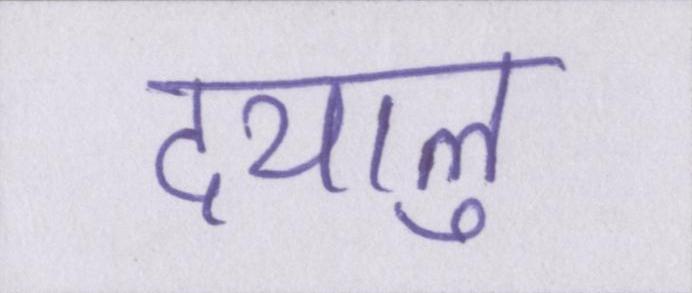 दयालु